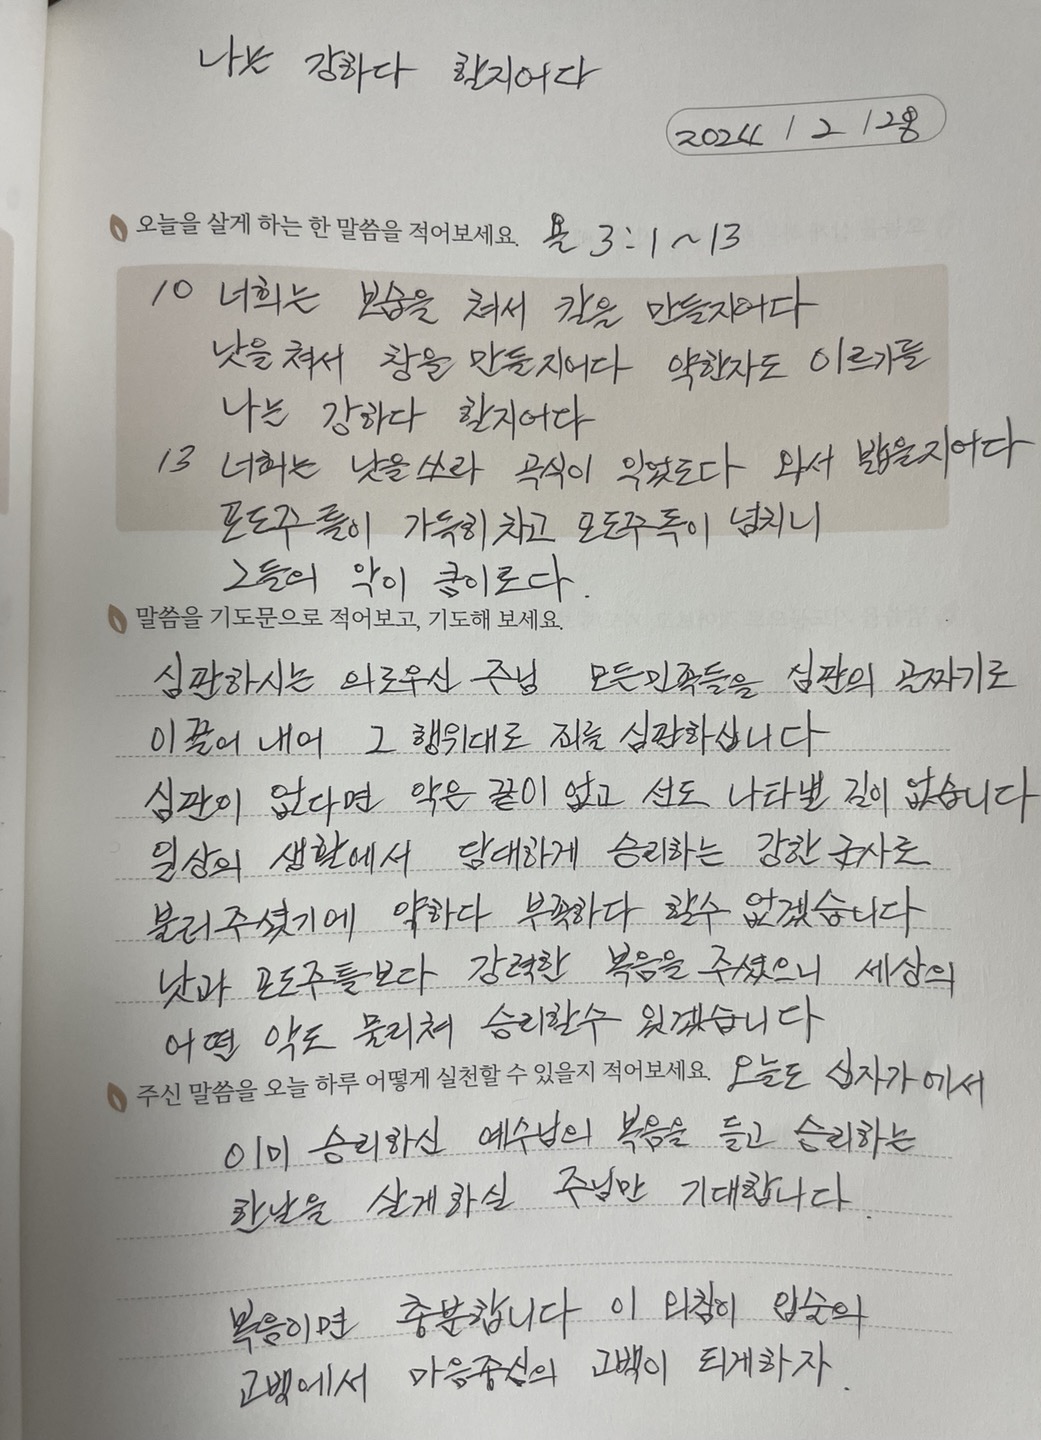 나는 강하다 할지어다
2024 / 2 / 28
오늘을 살게 하는 한 말씀을 적어보세요. 욜 3:1~13
10 너희는 보습을 쳐서 칼을 만들지어다
낫을 쳐서 창을 만들지어다 약한자도 이르기를
나는 강하다 할지어다
13 너희는 낫을 쓰라 곡식이 익었도다 와서 밟을지어다
포도주 틀이 가득히 차고 포도주독이 넘치니
그들의 악이 큼이로다.
말씀을 기도문으로 적어보고, 기도해 보세요.
심판하시는 의로우신 주님 모든민족들을 심판의 골짜기로
이끌어 내어 그 행위대로 죄를 심판하십니다
심판이 없다면 악은 끝이 없고 선도 나타낼 길이 없습니다
일상의 생활에서 담대하게 승리하는 강한 군사로
불러주셨기에 약하다 부족하다 할수 없겠습니다
낫과 포도주틀보다 강력한 복음을 주셨으니 세상의
어떤 악도 물리쳐 승리할수 있겠습니다
주신 말씀을 오늘 하루 어떻게 실천할 수 있을지 적어보세요. 오늘도 십자가에서
이미 승리하신 예수님의 복음을 들고 승리하는
한날을 살게하실 주님만 기대합니다.
복음이면 충분합니다 이 외침이 입술의
고백에서 마음중심의 고백이 되게하자.